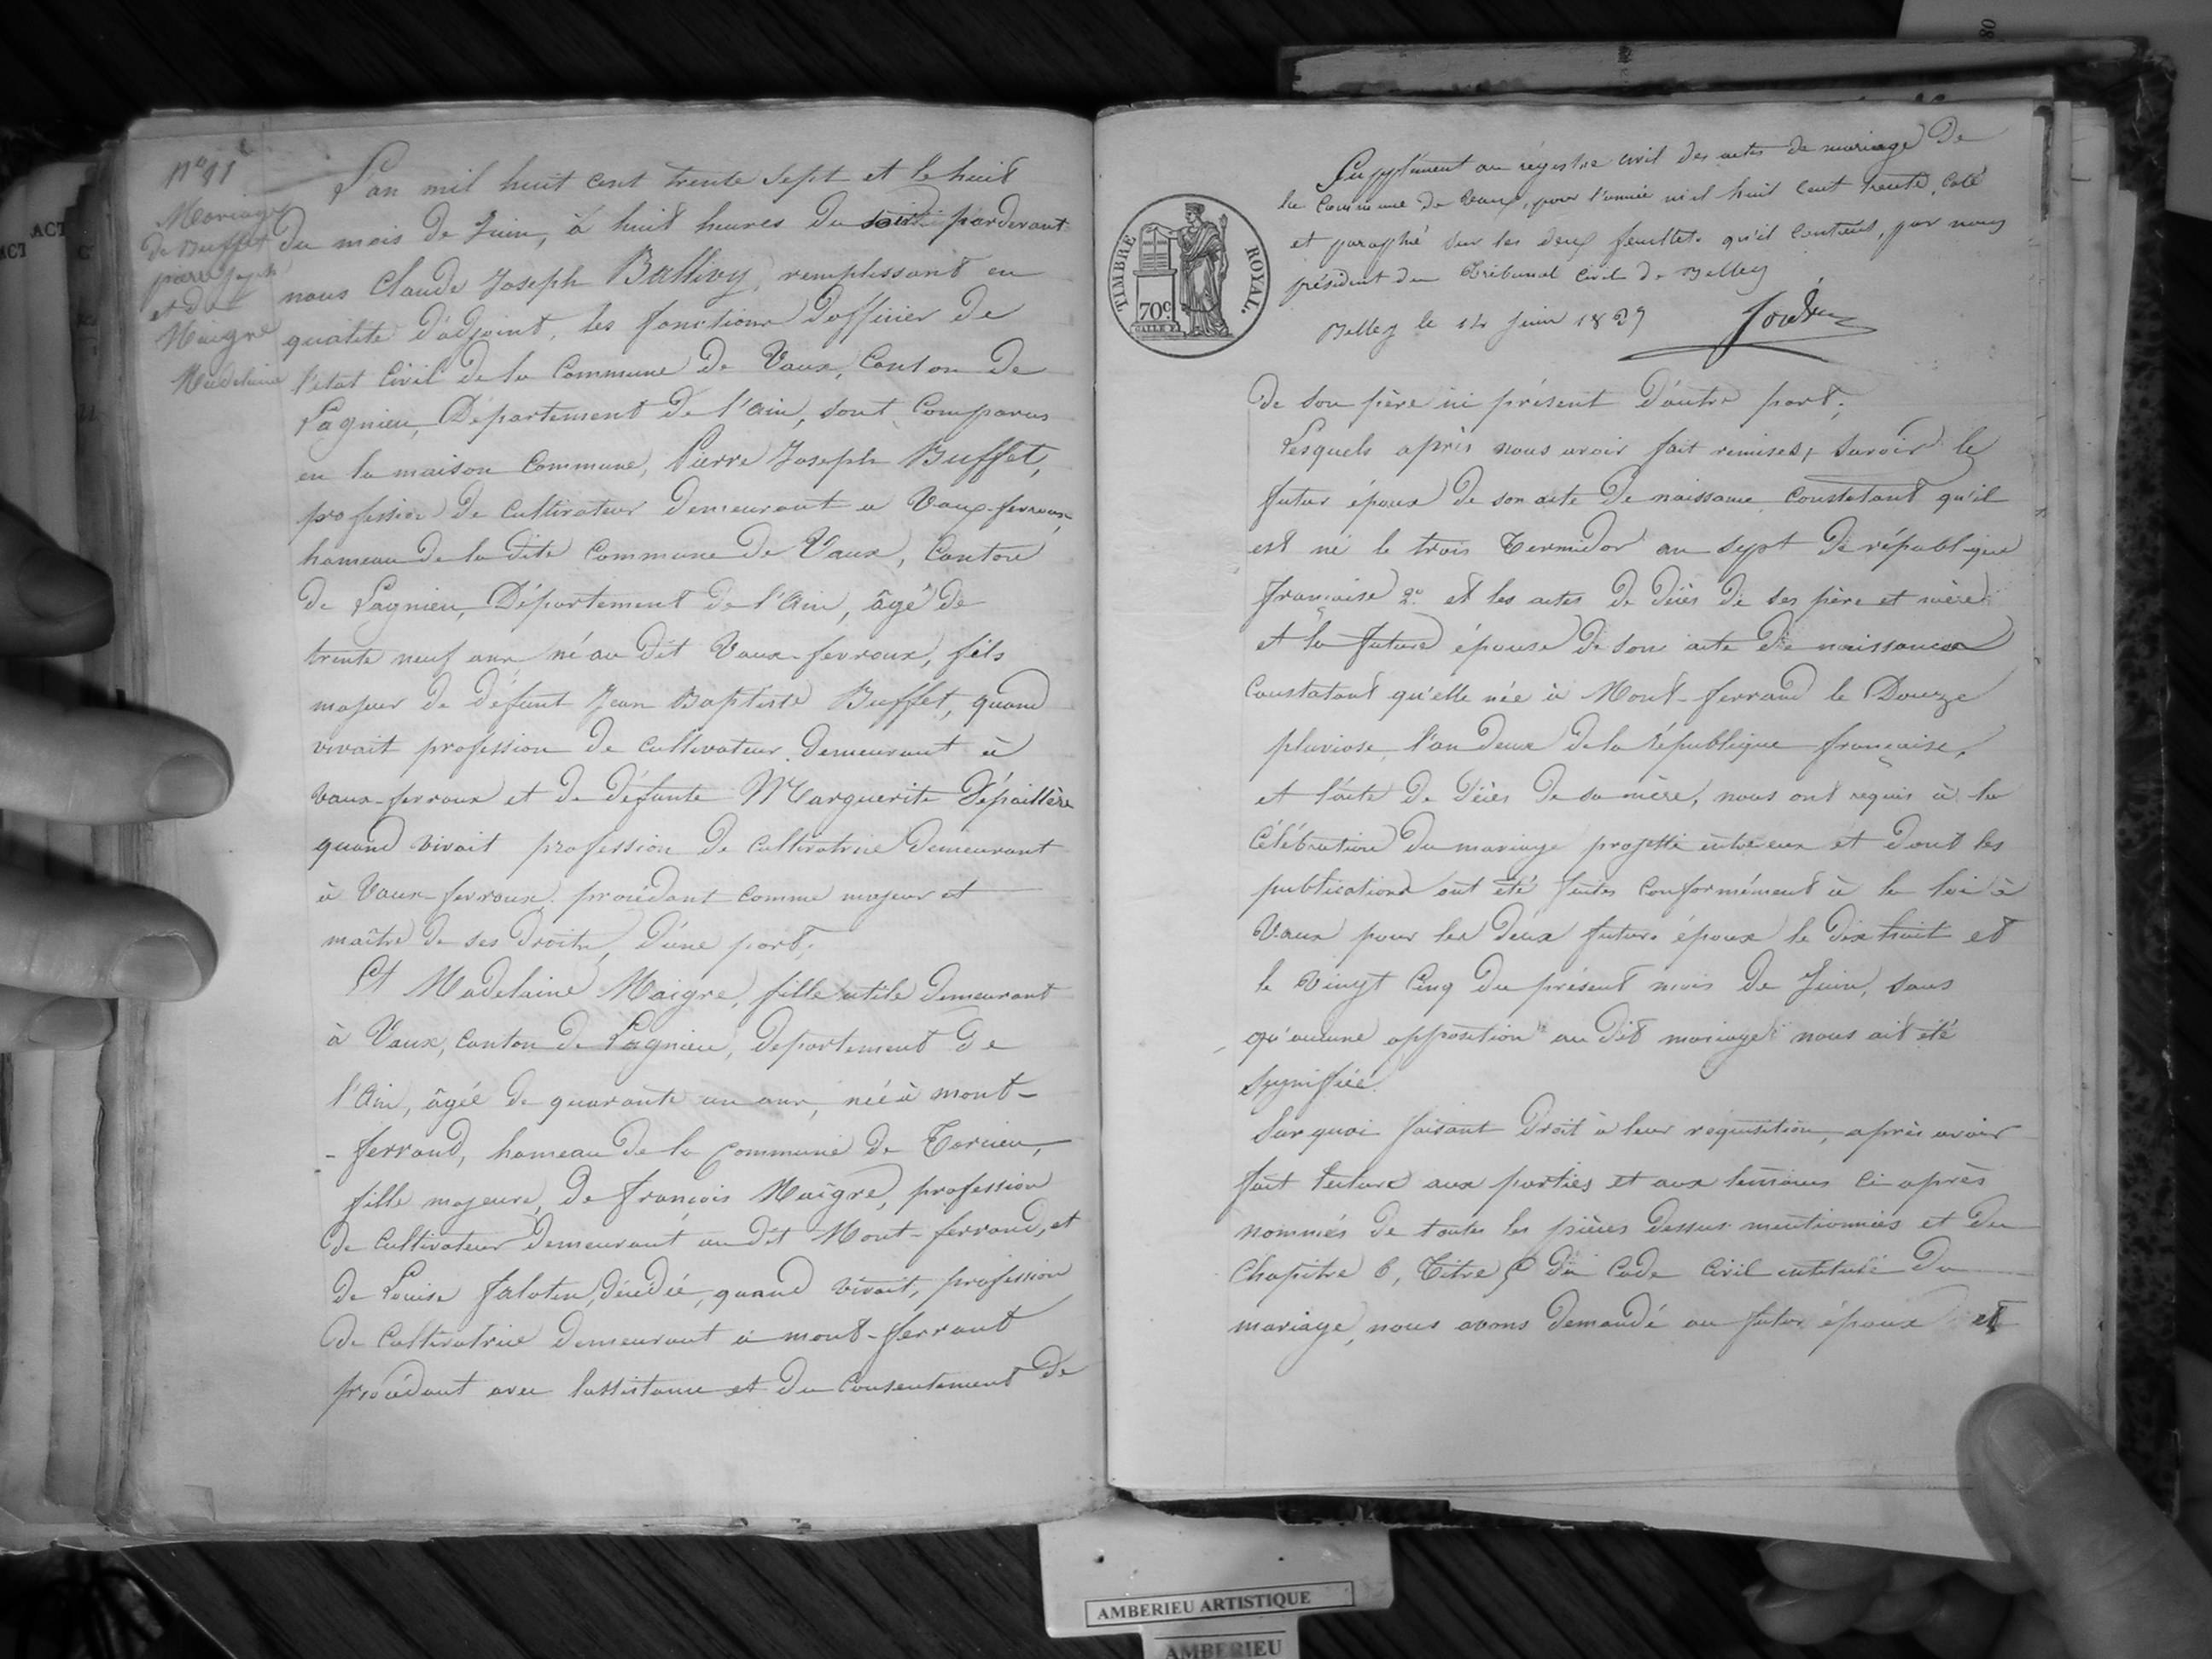 N° 11
Mariage
de Buffet
pierre joseph
et de
Maigre
Madelaine
L'an mil huit cent trente sept et le huit
du mois de Juin, à huit heures du soir pardevant
nous Claude Joseph Ballivy, remplissant en
qualité d'adjoint, les fonctions d'officier de
l'état Civil de la Commune de Vaux, Canton de
Lagnieu, Département de l'Ain, sont Comparus
en la maison Commune, Pierre Joseph Buffet,
profession de Cultivateur demeurant a Vaux-fevroux,
hameau de la dite Commune de Vaux, Canton
de Lagnieu, Département de l'Ain, âgé de
trente neuf ans né au dit Vaux-fevroux, fils
majeur de défunt Jean Baptiste Buffet, quand
vivait profession de cultivateur demeurant à
Vaux-fevroux et de défunte Marguerite Dépaillère
quand vivait profession de Cultivatrice demeurant
à Vaux-fevroux procédant comme majeur et
maître de ses droits, d'une part;
Et Madelaine Maigre, fille utile demeurant
à Vaux, Canton de Lagnieu, département de
l'Ain, âgée de quarante un ans, née à mont-
-ferrand, hameau de la Commune de Torcieu,
fille majeure, de François Maigre, profession
de Cultivateur demeurant au dit Mont-ferrand, et
de Louise falotin, décédée, quand vivait, profession
de Cultivatrice demeurant à mont-ferrant
procédant avec l'assistance et du Consentement de
TIMBRE ROYAL.
70c
Supplément au registre civil des actes de mariage de
la Commune de Vaux, pour l'année mil huit cent trente, coté
et paraphé sur les deux feuillets qu'il contient, par nous
président du Tribunal Civil de Belley
Belley le 14 juin 1839
de son père ici présent d'autre part;
Lesquels après nous avoir fait remises, savoir le
futur époux de son acte de naissance constatant qu'il
est né le trois Termidor an sept de république
française 2° et les actes de décès de ses père et mère
et la future épouse de son acte de naissance
Constatant qu'elle née à Mont-ferrand le Douze
pluviose l'an deux de la république française,
et l'acte de décès de sa mère, nous ont requis à la
Célébration du mariage projetté entre eux et dont les
publications ont été faites Conformément à la loi à
Vaux pour les deux futurs époux le dix huit et
le vingt Cinq du présent mois de Juin, sans
qu'aucune opposition au dit mariage nous ait été
signifiée.
Sur quoi faisant droit à leur réquisition, après avoir
fait lecture aux parties et aux témoins ci-après
nommés de toutes les pièces dessus mentionnées et du
Chapitre 6, Titre 5 du Code Civil intitulé du
mariage, nous avons demandé au futur époux et
AMBERIEU ARTISTIQUE
AMBERIEU